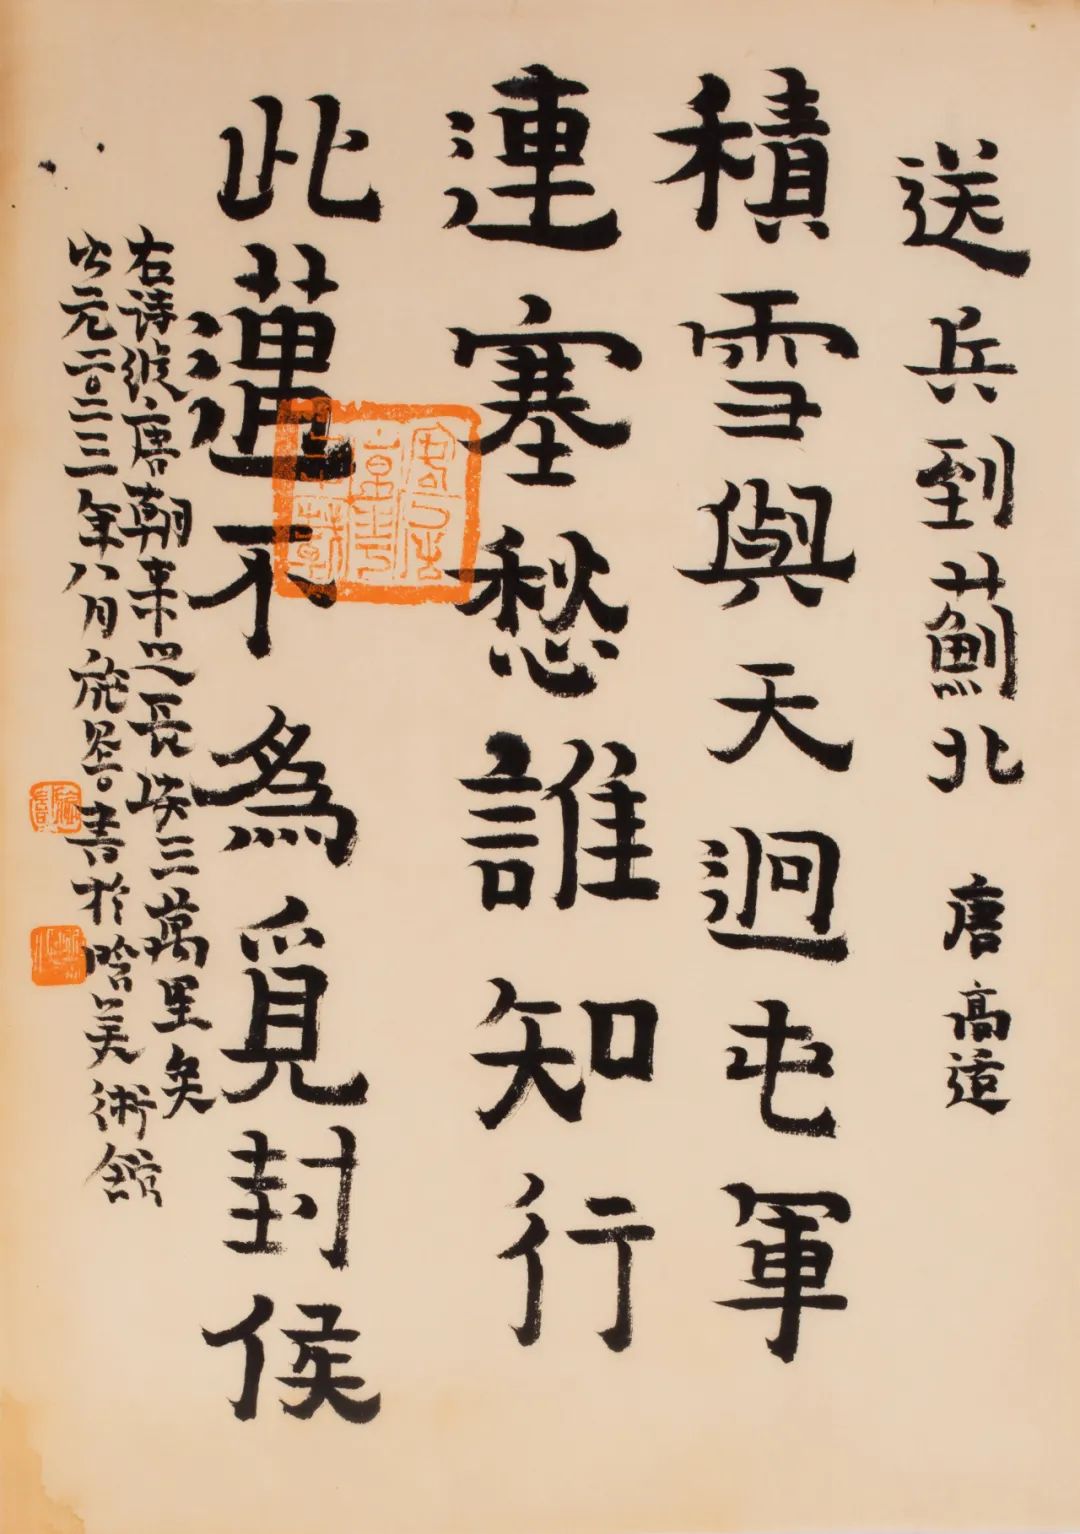 送兵到薊北 唐 高适
積雪與天迥屯軍
連塞愁誰知行
此邁不為覓封侯
右诗 唐朝 長 三萬里矣
公元二〇二三年八月施 書於 美術館